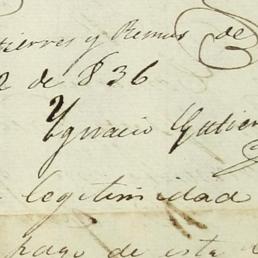 tierres y Remus de
2 de 836
Ygnacio Gutier
legitimidad
pago de esta